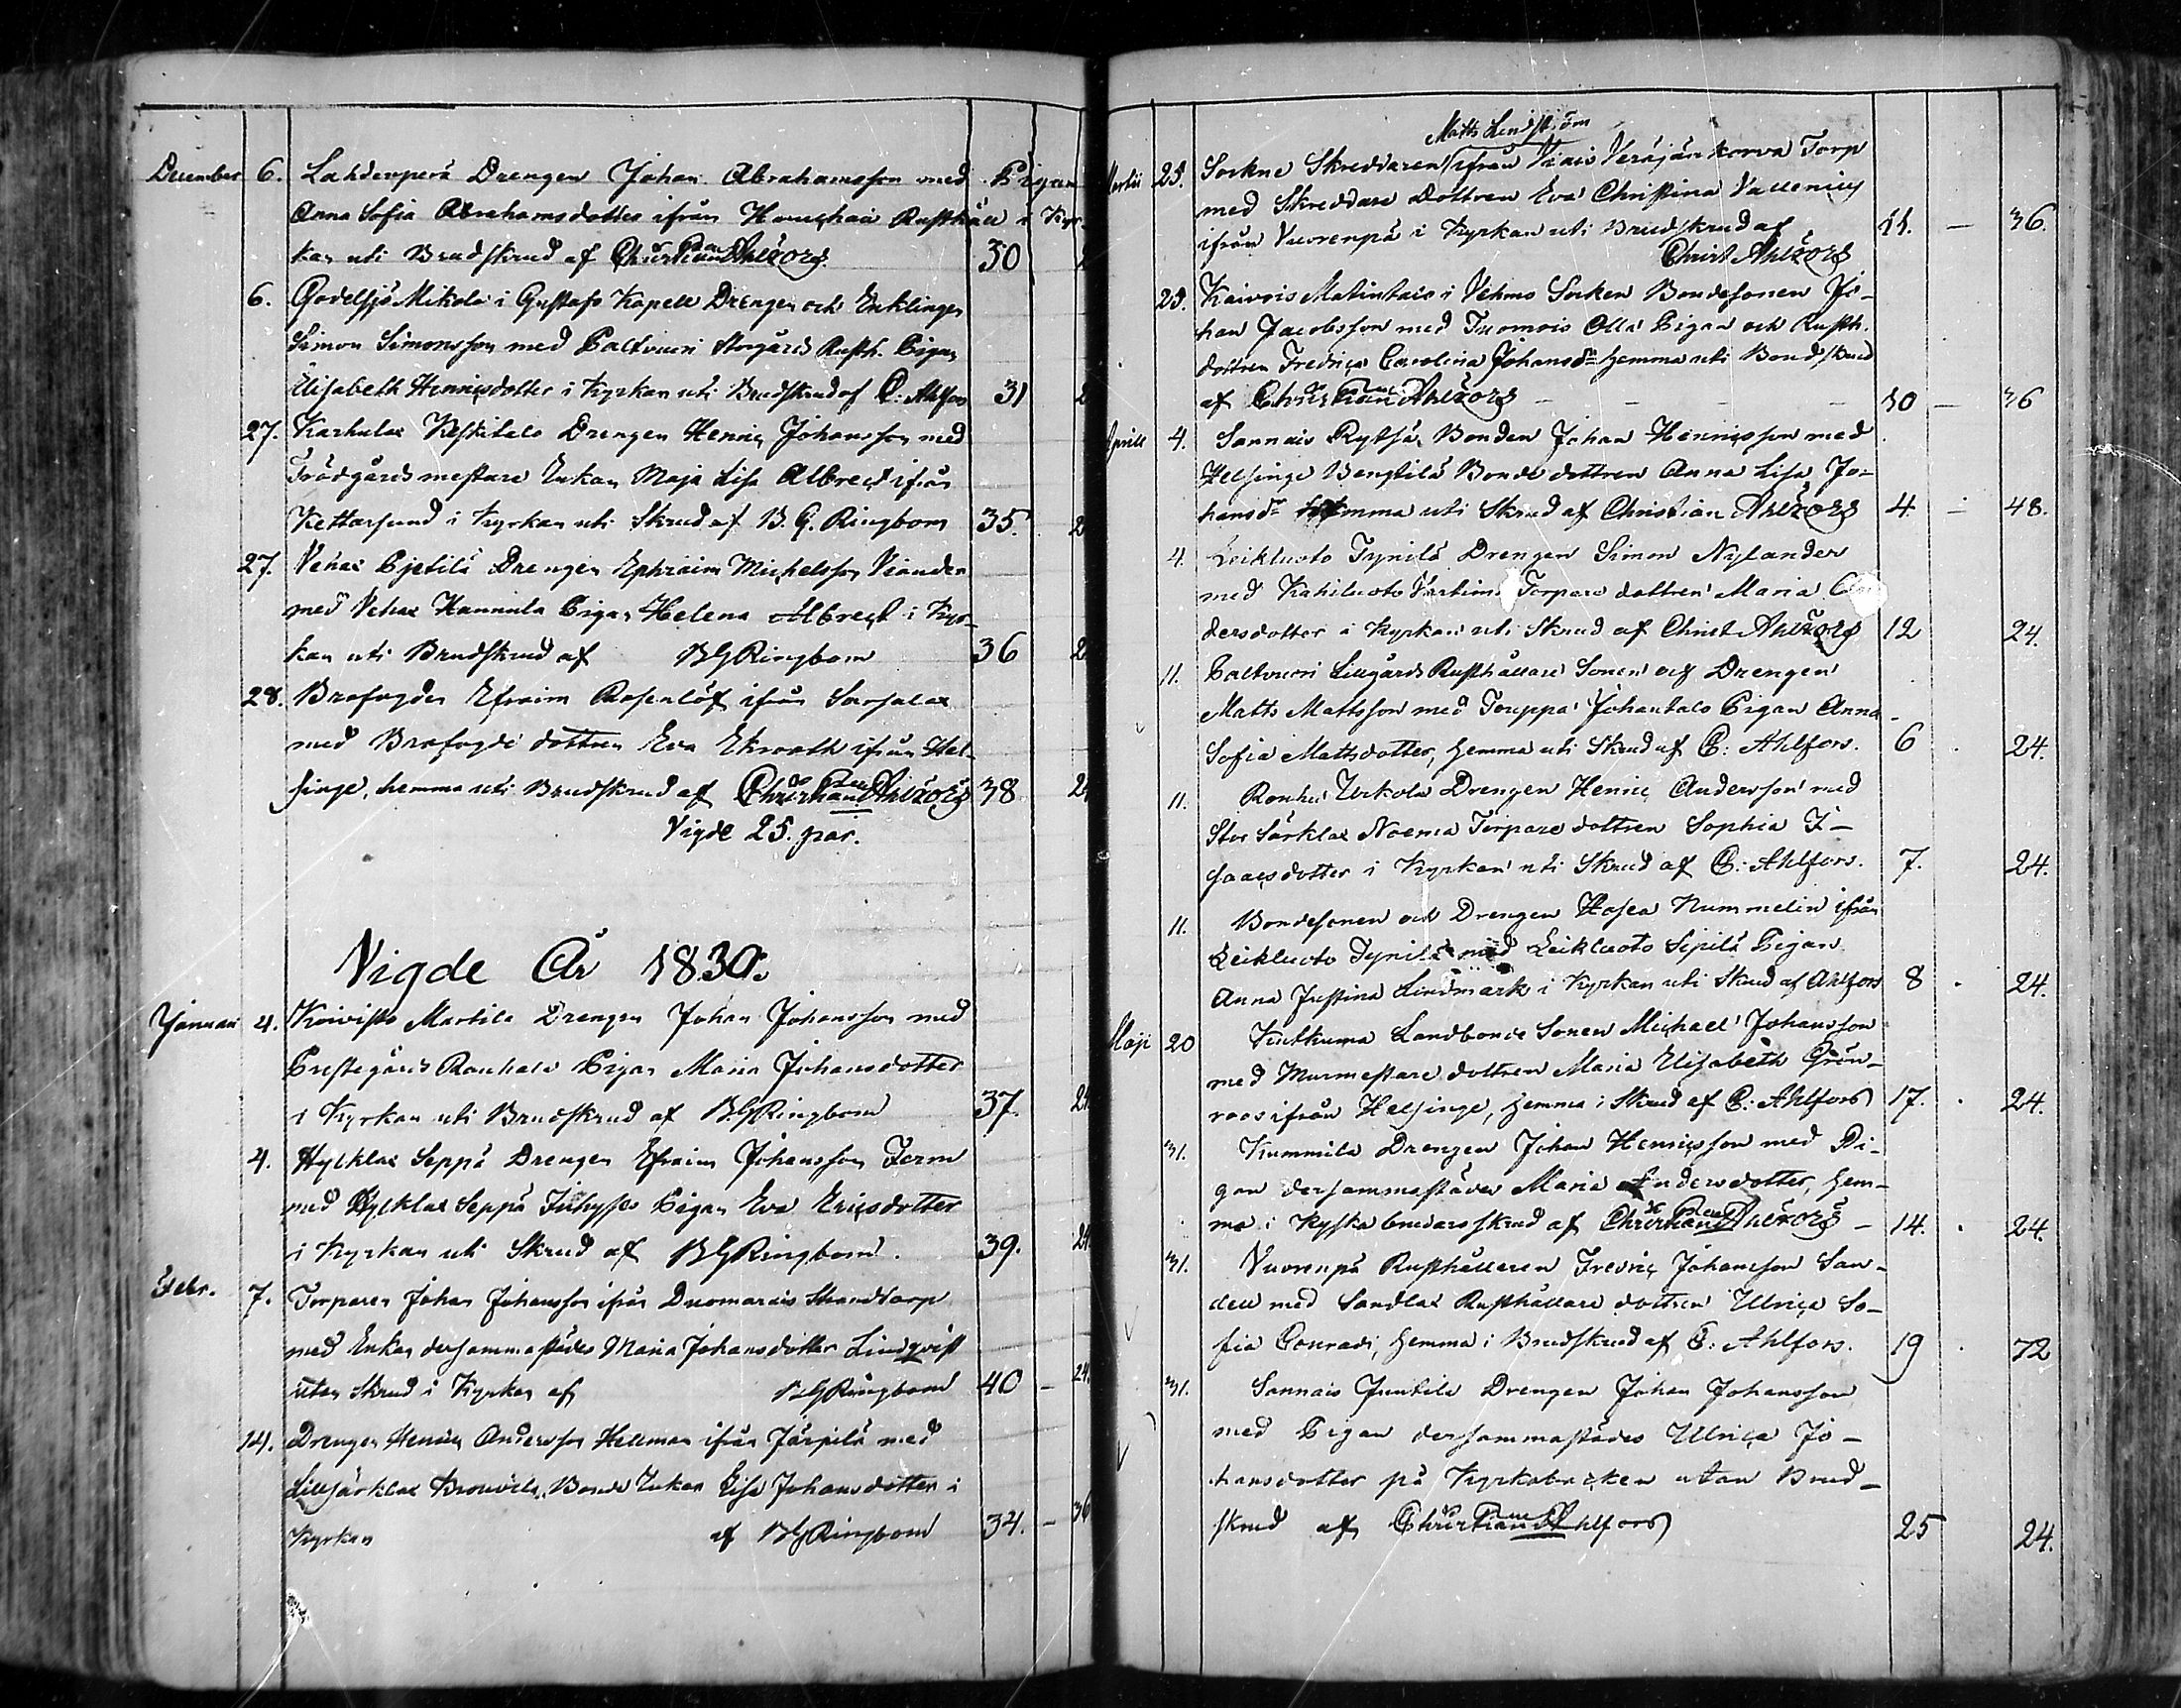 December 6. Lahdenperä Drengen Johan Abrahamsson med Pigan
Anna Sofia Abrahamsdotter ifrån Rusthåll i Kyr-
kan uti Brudskrud af Christian Ahlfors 30
6. Mikola i Gustafs Kapell Drengen och Enklingen
Simon Simonsson med Paltvuori Storgårds Rusth. Pigan
Elisabeth Henricsdotter i Kyrkan uti Brudskrud af C: Ahlfors 31
27. Karhula Keskitalo Drengen Henric Johansson med
Trädgårdsmestare Enkan Maja Lisa Albrecht ifrån
Kettarsund i Kyrkan uti Skrud af B. G. Ringbom 35.
27. Vehax Pjetilä Drengen Ephraim Michelsson Viander
med Vehax Hannula Pigan Helena Albrecht i Kyr-
kan uti Brudskrud af BGRingbom 36
28. Brofogden Efraim Rosenlöf ifrån
med Brofogde dottren Eva Ekroth ifrån Hel-
singe, hemma uti Brudskrud af Christian Ahlfors 38 24
Vigde 25. par.
Vigde År 1830.
Januari 4. Koivisto Martila Drengen Johan Johansson med
Prestegårds Rauhala Pigan Maria Johansdotter
i Kyrkan uti Brudskrud af BGRingbom 37. 24
4. Hylklax Seppä Drengen Efraim Johansson Term
med Hylklax Seppä Pigan Eva Ericsdotter
i Kyrkan uti Skrud af BGRingbom. 39. 24
Febr. 7. Torparen Johan Johansson ifrån Duomarais Strandtorp
med Enkan dersammastädes Maria Johansdotter Lindqvist
utan Skrud i Kyrkan af BGRingbom 40 – 24.
14. Drengen Henric Andersson Hellman ifrån Järpilä med
Lillsärklax Bonde Enkan Lisa Johansdotter i
Kyrkan af BGRingbom 34. – 36
Matts Lindström
Martii 25. Sockne Skreddaren ifrån Viais Veräjänkorva Torp
med Skreddare dottren Eva Christina Vallenius
ifrån Vuorenpä i Kyrkan uti Brudskrud af
Christ Ahlfors 11. – 36.
25. Kaivois Matintalo i Vehmo Socken Bondesonen Jo-
han Jacobsson med Tuomois Olla Pigan och Rusth.
dottren Fredrica Carolina Johansdr hemma uti Brudskrud
af Christian Ahlfors – – – 10 – 36
Aprill 4. Sannais Rytsä Bonden Johan Henricsson med
Helsinge Bengtilä Bonde dottren Anna Lisa Jo-
hansdr hemma uti Skrud af Christian Ahlfors 4 – 48.
4. Leikluoto Tynilä Drengen Simon Nylander
med Kahiluoto Torpare dottren Maria
dersdotter i Kyrkan uti Skrud af Christ Ahlfors 12 24.
11. Paltvuori Lillgårds Rusthållare Sonen och Drengen
Matts Mattsson med Pigan Anna
Sofia Mattsdotter, hemma uti Skrud af C: Ahlfors. 6 . 24.
11. Drengen Henric Andersson med
Stor Särklax Noema Torpare dottren Sophia I-
saacsdotter i Kyrkan uti Skrud af C: Ahlfors. 7. 24.
11. Bondesonen och Drengen Hosea Nummelin ifrån
Leikluoto Tynilä med Leikluoto Sipilä Pigan
Anna Justina Lindmark i Kyrkan uti Skrud af Ahlfors 8 . 24.
Maji 20 Kutkuma Landbonde Sonen Michael Johansson
med Murmestare dottren Maria Elisabeth Grön-
roos ifrån Helsinge, hemma i Skrud af C: Ahlfors 17. . 24.
31. Kummila Drengen Johan Henricsson med Pi-
gan dersammastädes Maria Andersdotter, hem-
ma i skrud af Christian Ahlfors – 14. . 24.
31. Vuorenpä Rusthållaren Fredric Johansson San-
dell med Sandlax Rusthållare dottren Ulrica So-
fia Conradi, hemma i Brudskrud af C: Ahlfors. 19 . 72
31. Sannais Juntila Drengen Johan Johansson
med Pigan dersammastädes Ulrica Jo-
hansdotter på Kyrkobacken utan Brud-
skrud af Christian Ahlfors 25 24.